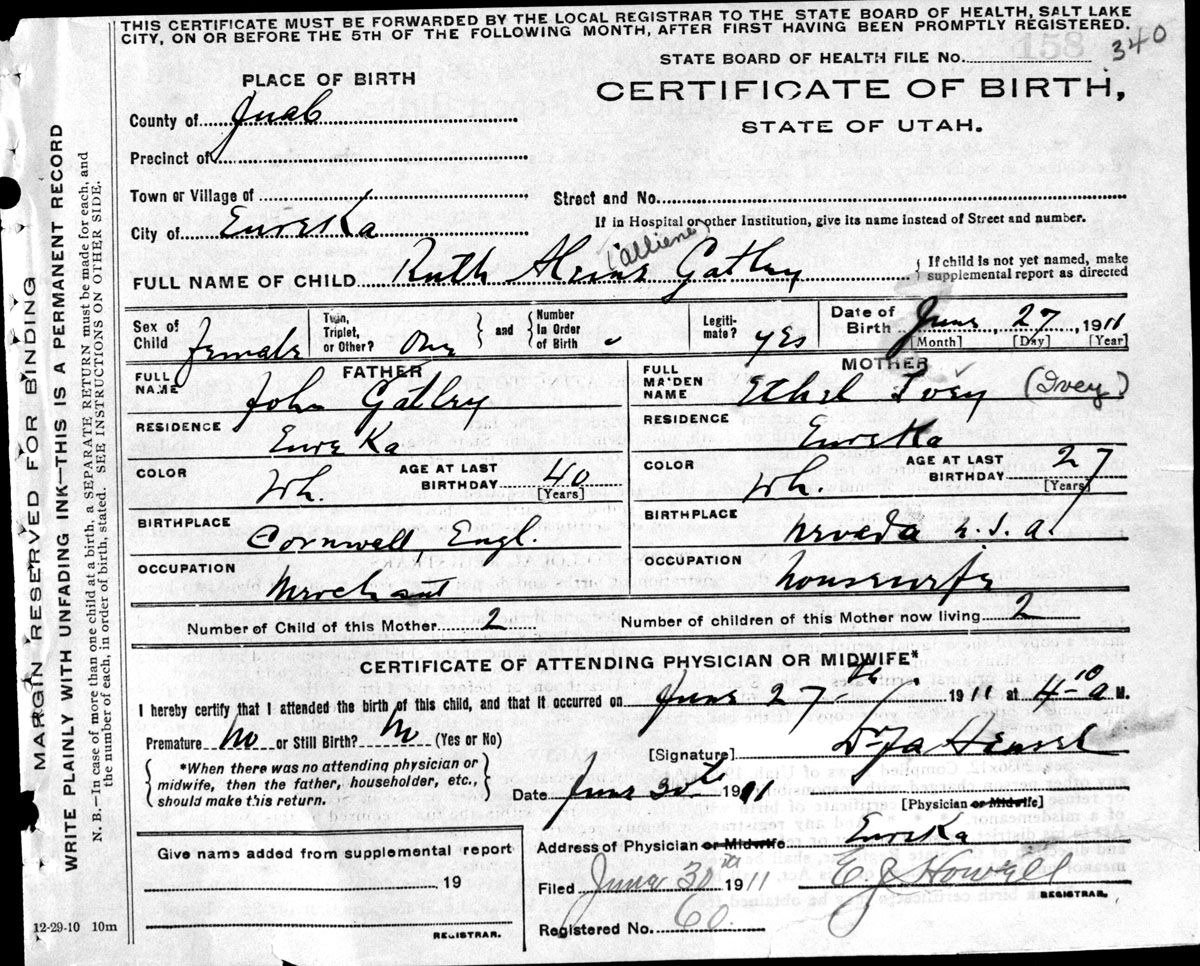 THIS CERTIFICATE MUST BE FORWARDED BY THE LOCAL REGISTRAR TO THE STATE BOARD OF HEALTH, SALT LAKE
CITY, ON OR BEFORE THE 5TH OF THE FOLLOWING MONTH, AFTER FIRST HAVING BEEN PROMPTLY REGISTERED.
158
340
STATE BOARD OF HEALTH FILE No.
PLACE OF BIRTH
CERTIFICATE OF BIRTH,
STATE OF UTAH.
County of Juab
Precinct of
Town or Village of
Street and No.
City of Eureka
If in Hospital or other Institution, give its name instead of Street and number.
(alliene)
FULL NAME OF CHILD Ruth Gatley
{ If child is not yet named, make supplemental report as directed
Sex of Child female
Twin, Triplet, or Other? One } and { Number In Order of Birth
Legitimate? yes
Date of Birth June, 27, 1911
[Month] [Day] [Year]
FATHER
MOTHER
FULL NAME John Gatley
FULL MAIDEN NAME Ethel Ivey (Ivey)
RESIDENCE Eureka
RESIDENCE Eureka
COLOR Wh. AGE AT LAST BIRTHDAY 40 [Years]
COLOR Wh. AGE AT LAST BIRTHDAY 27 [Years]
BIRTHPLACE Cornwall, Engl.
BIRTHPLACE Nevada U.S.A.
OCCUPATION Merchant
OCCUPATION housewife
Number of Child of this Mother 2
Number of children of this Mother now living 2
CERTIFICATE OF ATTENDING PHYSICIAN OR MIDWIFE*
I hereby certify that I attended the birth of this child, and that it occurred on June 27th, 1911 at 4-10 a M.
Premature No or Still Birth? No (Yes or No)
[Signature] Dr Hensel
{ *When there was no attending physician or
midwife, then the father, householder, etc.,
should make this return. }
Date June 30th 1911
[Physician or Midwife]
Address of Physician or Midwife Eureka
Give name added from supplemental report
19
REGISTRAR.
Filed June 30th 1911 E J Howell
REGISTRAR.
Registered No. 60.
12-29-10 10m
MARGIN RESERVED FOR BINDING
WRITE PLAINLY WITH UNFADING INK—THIS IS A PERMANENT RECORD
N. B.—In case of more than one child at a birth, a SEPARATE RETURN must be made for each, and
the number of each, in order of birth, stated. SEE INSTRUCTIONS ON OTHER SIDE.